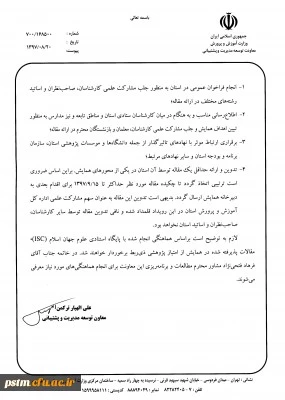 باسمه تعالی
جمهوری اسلامی ایران
وزارت آموزش و پرورش
معاونت توسعه مدیریت و پشتیبانی
شماره : ۷۰۰/۱۶۸۵۰۰
تاریخ : ۱۳۹۷/۰۸/۲۰
پیوست :
۱- انجام فراخوان عمومی در استان به منظور جلب مشارکت علمی کارشناسان، صاحب‌نظران و اساتید
رشته‌های مختلف در ارائه مقاله؛
۲- اطلاع‌رسانی مناسب و به هنگام در میان کارشناسان ستادی استان و مناطق تابعه و نیز مدارس به منظور
تبیین اهداف همایش و جلب مشارکت علمی کارشناسان، معلمان و بازنشستگان محترم در ارائه مقاله؛
۳- برقراری ارتباط موثر با نهادهای تاثیرگذار از جمله دانشگاه‌ها و موسسات پژوهشی استان، سازمان
برنامه و بودجه استان و سایر نهادهای مرتبط؛
۴- تدوین و ارائه حداقل یک مقاله توسط آن استان در یکی از محورهای همایش. براین اساس ضروری
است ترتیبی اتخاذ گردد تا چکیده مقاله مورد نظر حداکثر تا ۱۳۹۷/۹/۱۵ برای اقدام بعدی به
دبیرخانه همایش ارسال گردد. بدیهی است تدوین این مقاله به عنوان سهم مشارکت علمی اداره کل
آموزش و پرورش استان در این رویداد قلمداد شده و نافی تدوین مقاله توسط سایر کارشناسان،
صاحب‌نظران و اساتید استان نخواهد بود.
لازم به توضیح است براساس هماهنگی انجام شده با پایگاه استنادی علوم جهان اسلام (ISC)،
مقالات پذیرفته شده در همایش از امتیاز پژوهشی ذی‌ربط برخوردار خواهند شد. در خاتمه جناب آقای
فرهاد فتحی‌نژاد مشاور محترم مطالعات و برنامه‌ریزی این معاونت برای انجام هماهنگی‌های مورد نیاز معرفی
می‌شوند.
علی الهیار ترکمن
معاون توسعه مدیریت و پشتیبانی
نشانی : تهران - میدان فردوسی - خیابان شهید سپهبد قرنی - نرسیده به چهار راه سمیه - ساختمان مرکزی وزارت
pstm.cfu.ac.ir